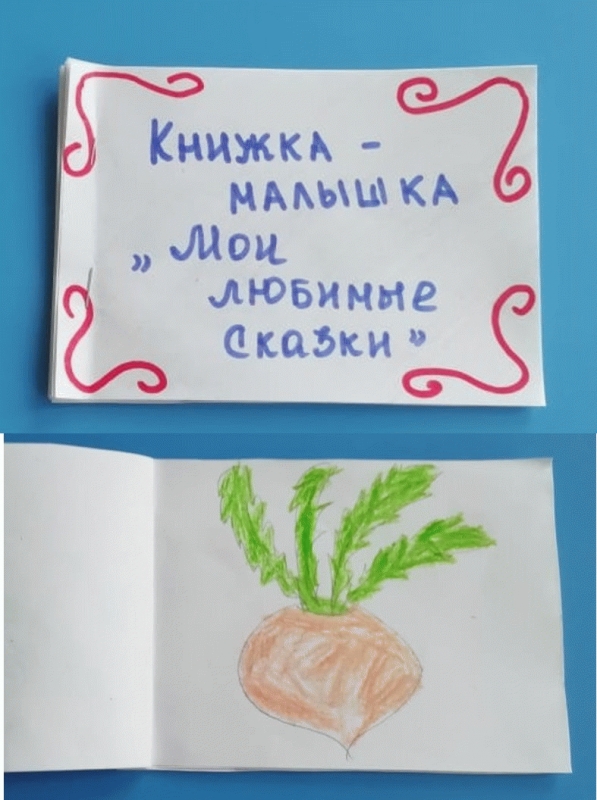 Книжка -
малышка
„Мои
любимые
сказки”